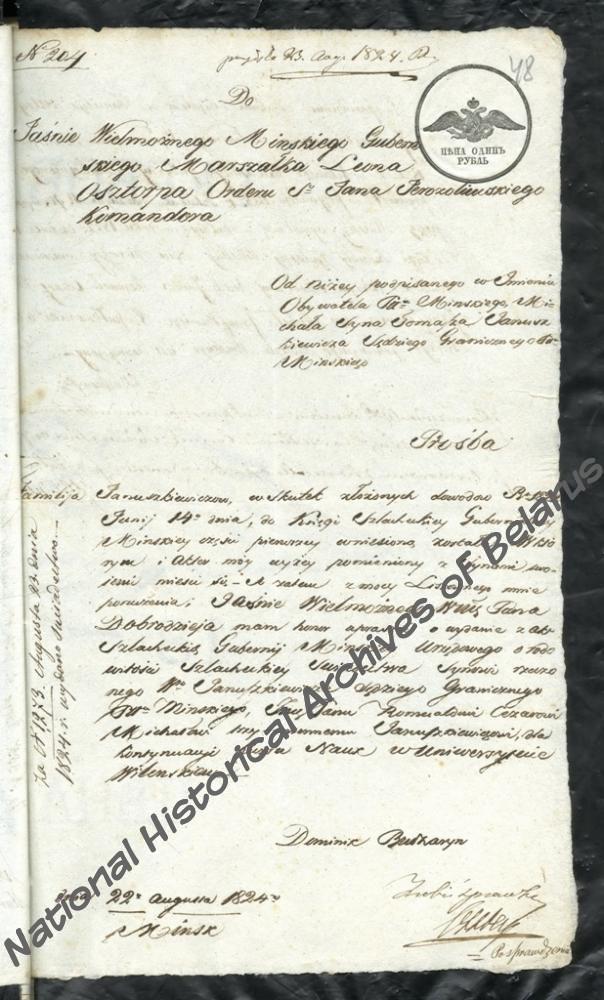 N 204
23. Aug. 1824.
48
ЦѢНА ОДИНЪ
РУБЛЬ
Do
Jaśnie Wielmożnego Minskiego Guber
skiego Marszałka Leona
Osztorpa Orderu St Jana Jerozolimskiego
Komandora
Od niżey podpisanego w Imieniu
Obywatela Ptu Minskiego, Mi
chała Syna Tomasza Janusz
kiewicza Sędziego Granicznego Ptu
Minskiego
Prośba
Familija Januszkiewiczow, w skutek złożonych dowodow
Junij 14 dnia, do Księgi Szlacheckiey Gubernij
Minskiey części pierwszey wniesioną została w któ
rym i Aktor moy wyżey pomieniony z Synami swo
iemi mieści się - A zatem z mocy Listownego mnie
poruczenia; Jaśnie Wielmożnego Pana
Dobrodzieja mam honor o wydanie z Akt
Szlacheckich Gubernij Urzędowego o rodo
witości Szlacheckiey Świadectwa Synowi rzeczo
nego Januszkiewicza Sędziego Granicznego
Ptu Minskiego, Janu Romualdowi Cezarowi
Januszkiewiczowi, dla
kontynuacji Nauk w Uniwersytecie
Wilenskim
za N 1273. Augusta 23 dnia
1824 r. wydano świadectwo.
Dominik Bułharyn
22 augusta 1824
Minsk
Po sprawdzeniu
National Historical Archives of Belarus